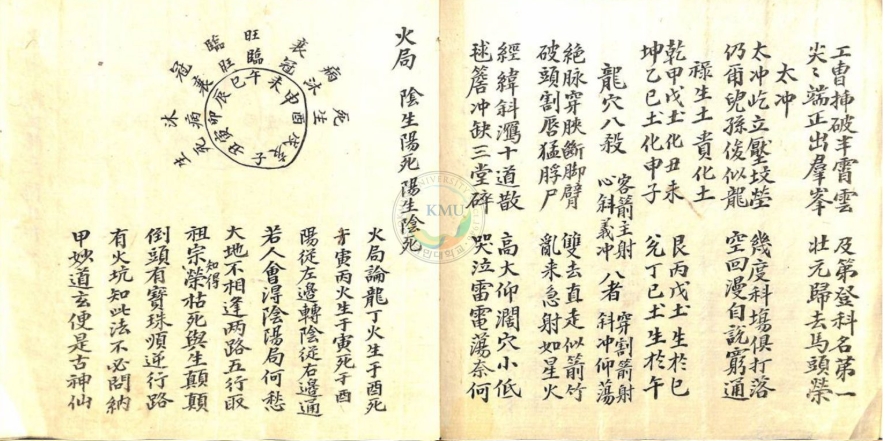 工曹揷破半霄雲 及第登科名第一
尖〻端正出羣峯 壯元歸去馬頭榮
太冲
太冲屹立壓坟塋 幾度科塲俱打落
仍爾兒孫俊似龍 空回漫自說窮通
祿生土貴化土
乾甲戊土化丑未 艮丙戊土生於巳
坤乙巳土化申子 兊丁巳土生於午
龍穴八殺 客箭主射 心斜義冲 八者 穿割箭射 斜冲仰蕩
絶脉穿脥斷脚臂 雙去直走似箭竹
破頭割唇猛脬尸 亂来急射如星火
經緯斜瀉十道散 高大仰濶穴小低
毬簷冲缺三堂碎 哭泣雷電蕩奈何
火局 陰生陽死 陽生陰死
生沐冠臨旺衰病死
死病衰旺臨冠沐生
寅卯辰巳午未申酉戌亥子丑
火局論龍丁火生于酉死
于寅丙火生于寅死于酉
陽從左邊轉陰從右邊通
若人會得陰陽局何愁
大地不相逢两路五行取
祖宗知得榮枯死與生顛顛
倒頭有寶珠順逆行路
有火坑知此法不必問納
甲妙道玄便是古神仙
KMU